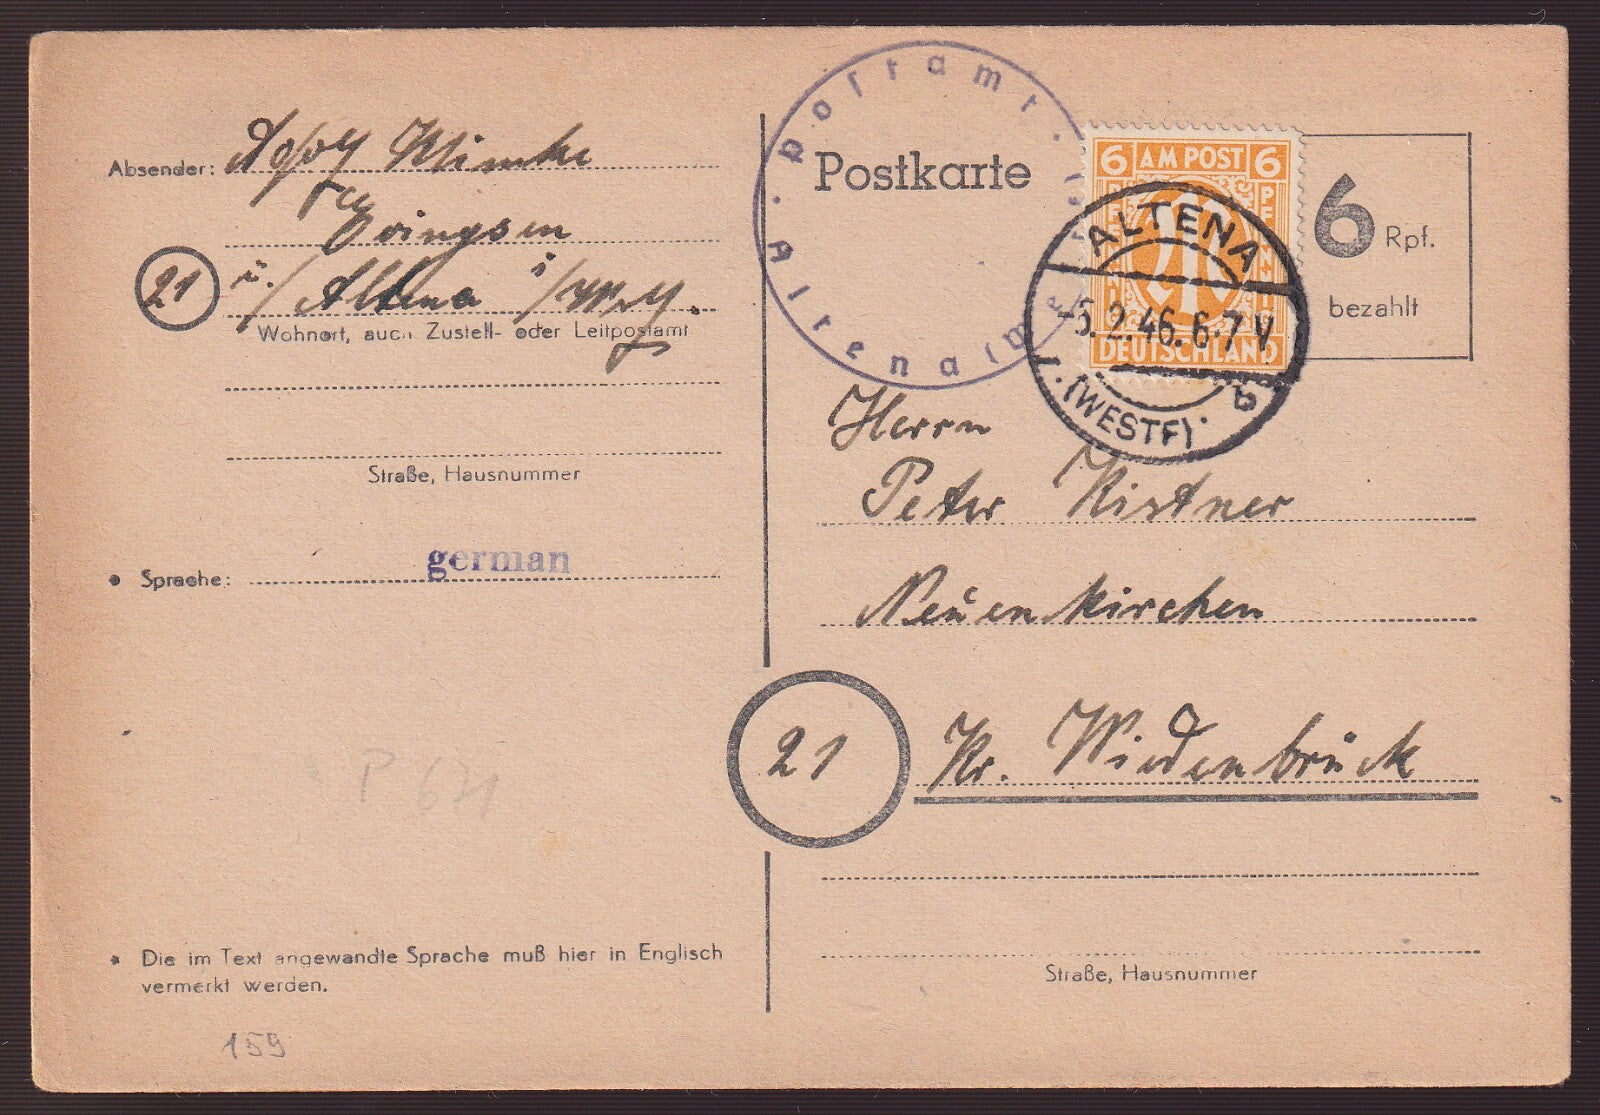 Absender: Adolf Klincke
Evingsen
21 ü./Altena i/Westf.
Wohnort, auch Zustell- oder Leitpostamt
Straße, Hausnummer
* Sprache: german
P 671
* Die im Text angewandte Sprache muß hier in Englisch
vermerkt werden.
159
Postamt
Altena (Westf
Postkarte
6 AM POST 6
PFENNIG PFENNIG
DEUTSCHLAND
6 Rpf.
bezahlt
ALTENA
5.2.46.6-7V
(WESTF)
Herrn
Peter Kistner
Neuenkirchen
21 Kr. Wiedenbrück
Straße, Hausnummer